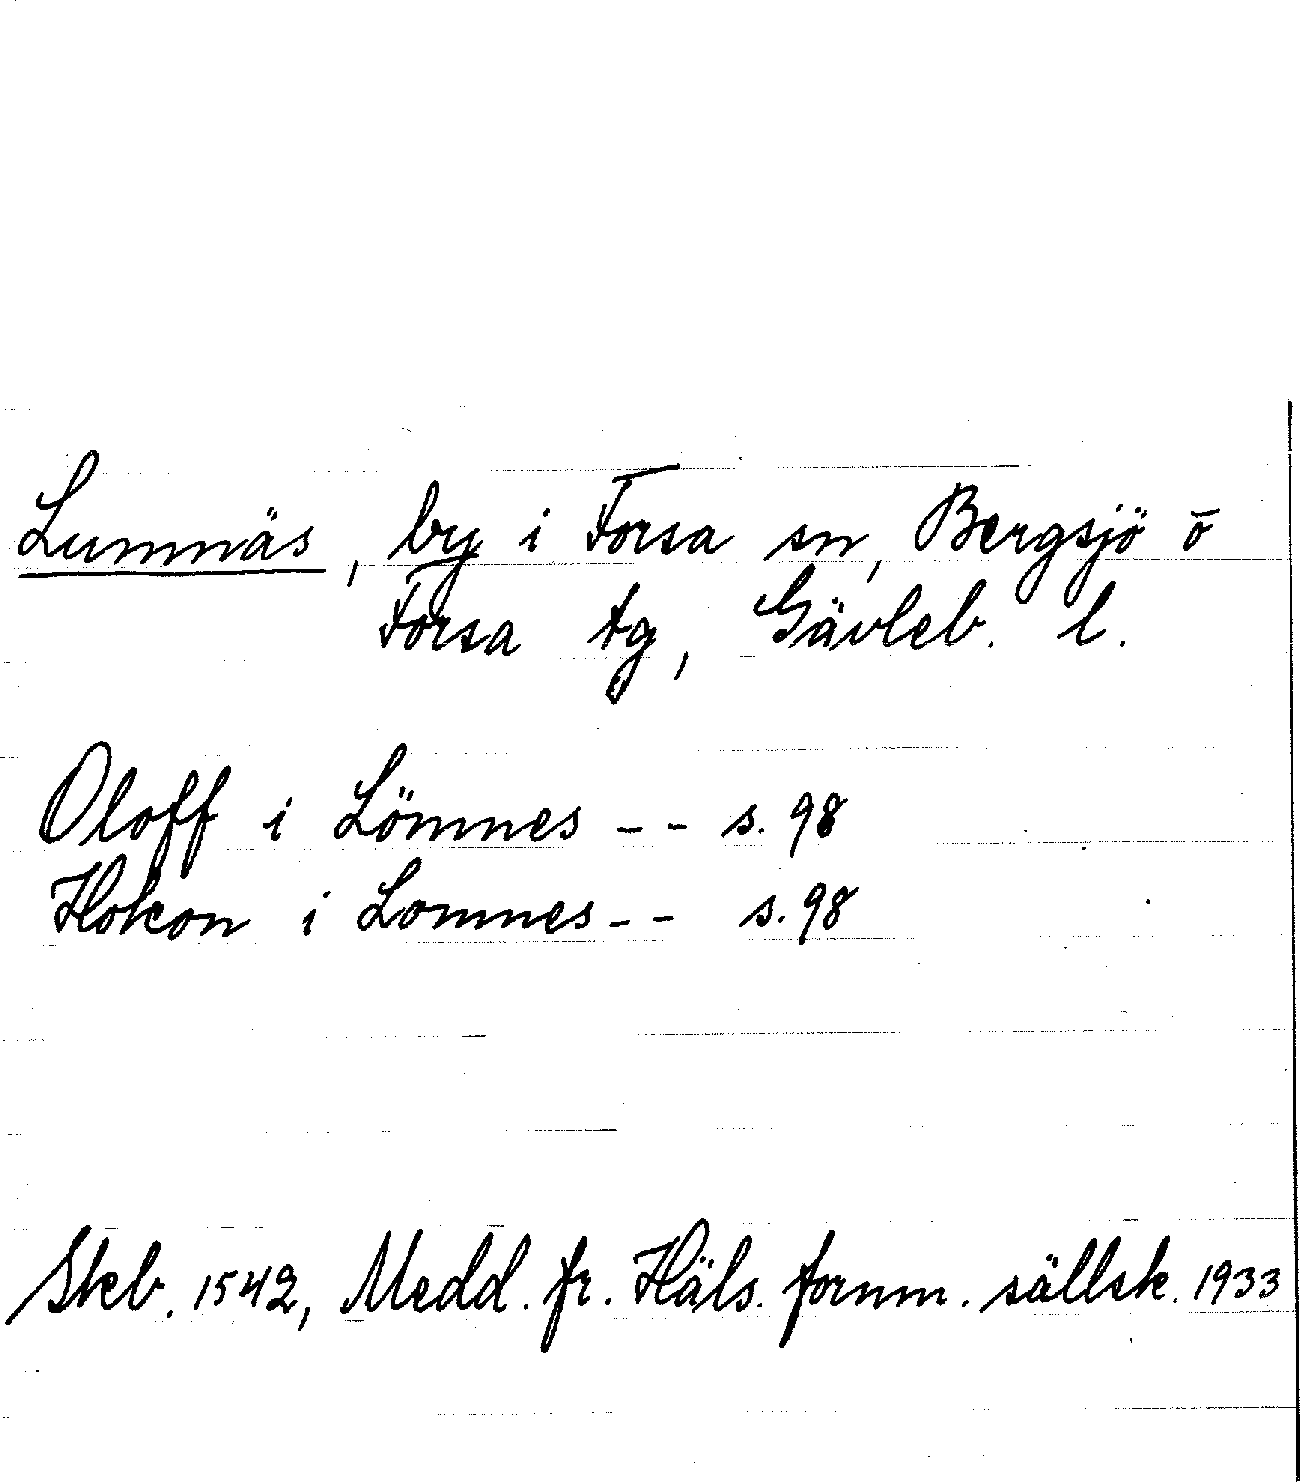 Lumnäs, by i Forsa sn, Bergsjö o
Forsa tg, Gävleb. l.
Oloff i Lömnes -- s. 98
Hokon i Lomnes -- s. 98
Skb. 1542, Medd. fr. Häls. fornm. sällsk. 1933